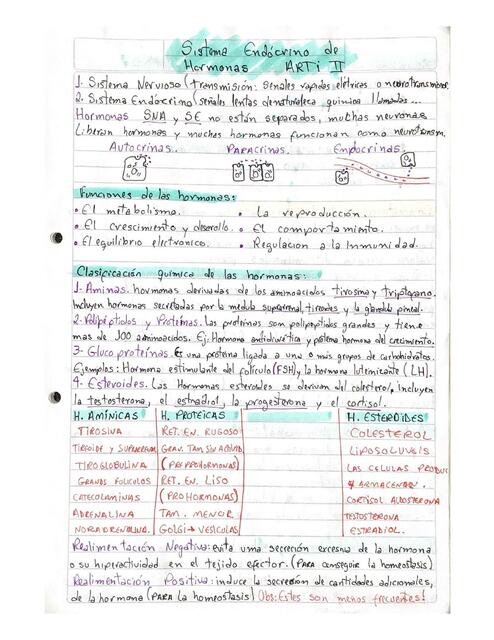 Sistema Endócrino de
Hormonas ARTi II
1- Sistema Nervioso (transmision: señales rapidas elétricas o neurotransmisores
2. Sistema Endócrino (señales lentas de naturaleza quimica llamadas...
Hormonas SNA y SE no están separados, muchas neuronas
Liberan hormonas y muchas hormonas funcionan como neurotransm.
Autocrinas. Paracrinas. Endocrinas.
Funciones de las hormonas:
• El metabolismo. • La reproducción.
• El crecimiento y desarollo. • El comportamiento.
• El equilibrio electronico. • Regulacion a la Inmunidad.
Clasificación química de las hormonas:
1- Aminas. hormonas derivadas de los aminoacidos tirosina y triptofano.
Incluyen hormonas secretadas por la medula suprarrenal, tiroides y la glandula pineal.
2- Polipéptidos y Proteinas. Las proteinas son polipeptidos grandes y tiene
mas de 100 aminoacidos. Ej: Hormona antidiuretica y hormona del crecimiento.
3- Glucoproteinas. Es una proteina ligada a uno o más grupos de carbohidratos.
Ejemplos: Hormona estimulante del foliculo (FSH), la hormona luteinizante (LH).
4- Esteroides. Las Hormonas esteroides se derivan del colesterol, incluyen
la testosterona, el estradiol, la progesterona y el cortisol.
H. AMÍNICAS H. PROTEICAS H. ESTEROIDES
TIROSINA RET. EN. RUGOSO COLESTEROL
TIROIDE Y SUPRARRENAL GRAN. TAM SIN ACTIVID LIPOSOLUVLS
TIROGLOBULINA (PREPROHORMONAS) LAS CELULAS PRODUC
GRANDS FOLICULOS RET. EN. LISO Y ALMACENAN.
CATECOLAMINAS (PROHORMONAS) CORTISOL ALDOSTERONA
ADRENALINA TAM. MENOR TESTOSTERONA
NORADRENALINA. GOLGI → VESÍCULAS ESTRADIOL.
Realimentación Negativa: evita una secreción excesiva de la hormona
o su hiperactividad en el tejido efector. (PARA conseguir la homeostasis)
Realimentación Positiva: induce la secreción de cantidades adicionales,
de la hormona (PARA la homeostasis) Obs: Estes son menos frecuentes!